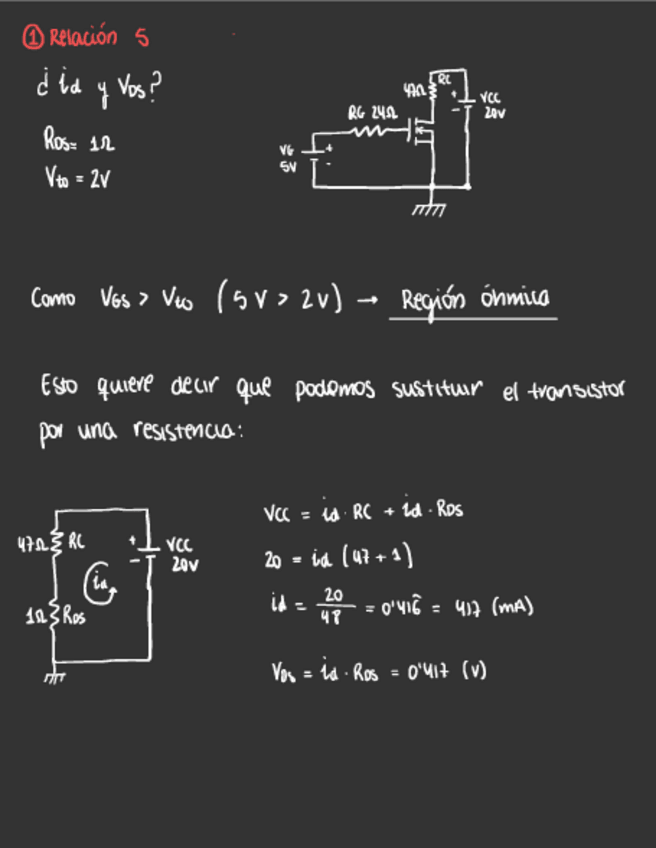 ① Relación 5
¿id y VDS?
RDS= 1Ω
Vto = 2V
47Ω RC
+
-
VCC
20V
RG 24Ω
VG
5V
+
-
Como VGS > Vto (5V > 2V) → Región óhmica
Esto quiere decir que podemos sustituir el transistor
por una resistencia:
47Ω RC
+
-
VCC
20V
id
1Ω RDS
VCC = id · RC + id · RDS
20 = id (47 + 1)
id = 20/48 = 0'416̂ = 417 (mA)
VDS = id · RDS = 0'417 (V)